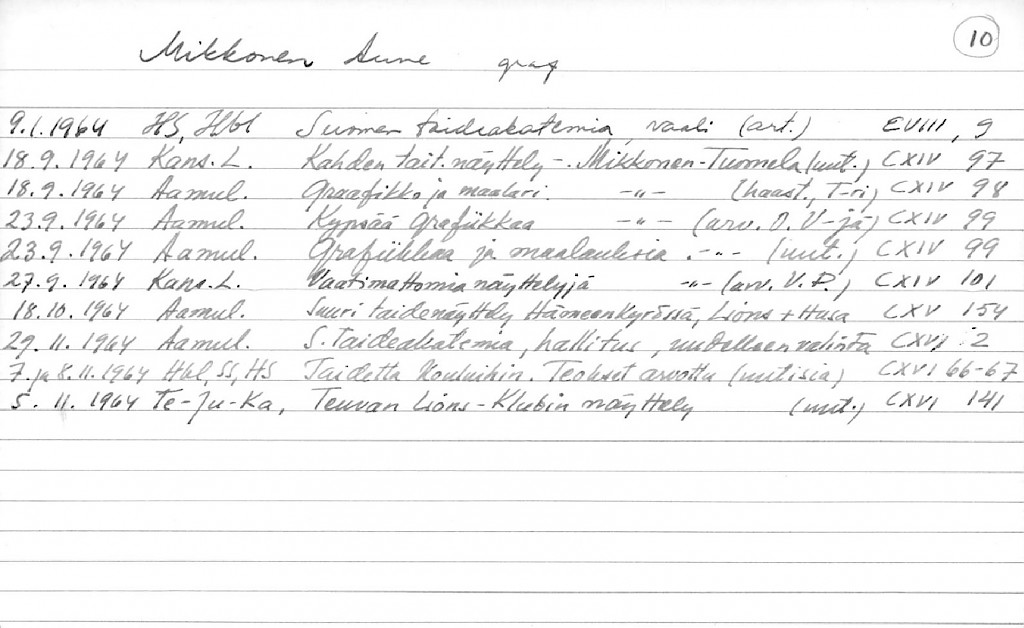 10
Mikkonen Aune graf
9.1.1964 HS, Hbl Suomen taideakatemia, vaali (art.) EVIII, 9
18.9.1964 Kans. L. Kahden tait. näyttely -. Mikkonen-Tuomela (uut.) CXIV 97
18.9.1964 Aamul. Graafikko ja maalari. -"- (haast., T-ri) CXIV 98
23.9.1964 Aamul. Kypsää grafiikkaa -"- (arv. O. V-jä) CXIV 99
23.9.1964 Aamul. Grafiikkaa ja maalauksia. -"- (uut.) CXIV 99
27.9.1964 Kans. L. Vaatimattomia näyttelyjä -"- (arv. V. P.) CXIV 101
18.10.1964 Aamul. Suuri taidenäyttely Hämeenkyrössä, Lions + Husa CXV 154
29.11.1964 Aamul. S. Taideakatemia, hallitus, uudelleen valinta CXVI 2
7. ja 8.11.1964 Hbl, SS, HS Taidetta kouluihin. Teokset arvottu (uutisia) CXVI 66-67
5. 11. 1964 Te-Ju-Ka, Teuvan Lions-Klubin näyttely (uut.) CXVI 141